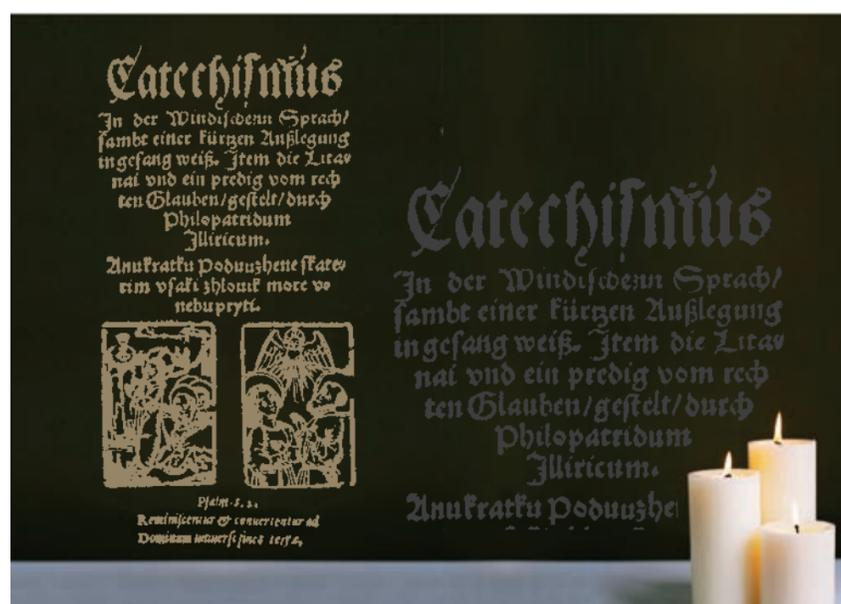 Catechiſmus
In der Windiſchenn Sprach/
ſambt einer kürtzen Außlegung
in geſang weiß. Item die Litan
nai vnd ein predig vom rech
ten Glauben/geſtelt/durch
Philopatridum
Illiricum.
Anukratku Poduuzhene ſkate⸗
rim vſaki zhlouik more vo
nebu pryti.
Pſalm. 
Reminiſcentur & conuertentur ad
Dominum vniuerſi fines terræ,
Catechiſmus
In der Windiſchenn Sprach/
ſambt einer kürtzen Außlegung
in geſang weiß. Item die Litan
nai vnd ein predig vom rech
ten Glauben/geſtelt/durch
Philopatridum
Illiricum.
Anukratku Poduuzhe